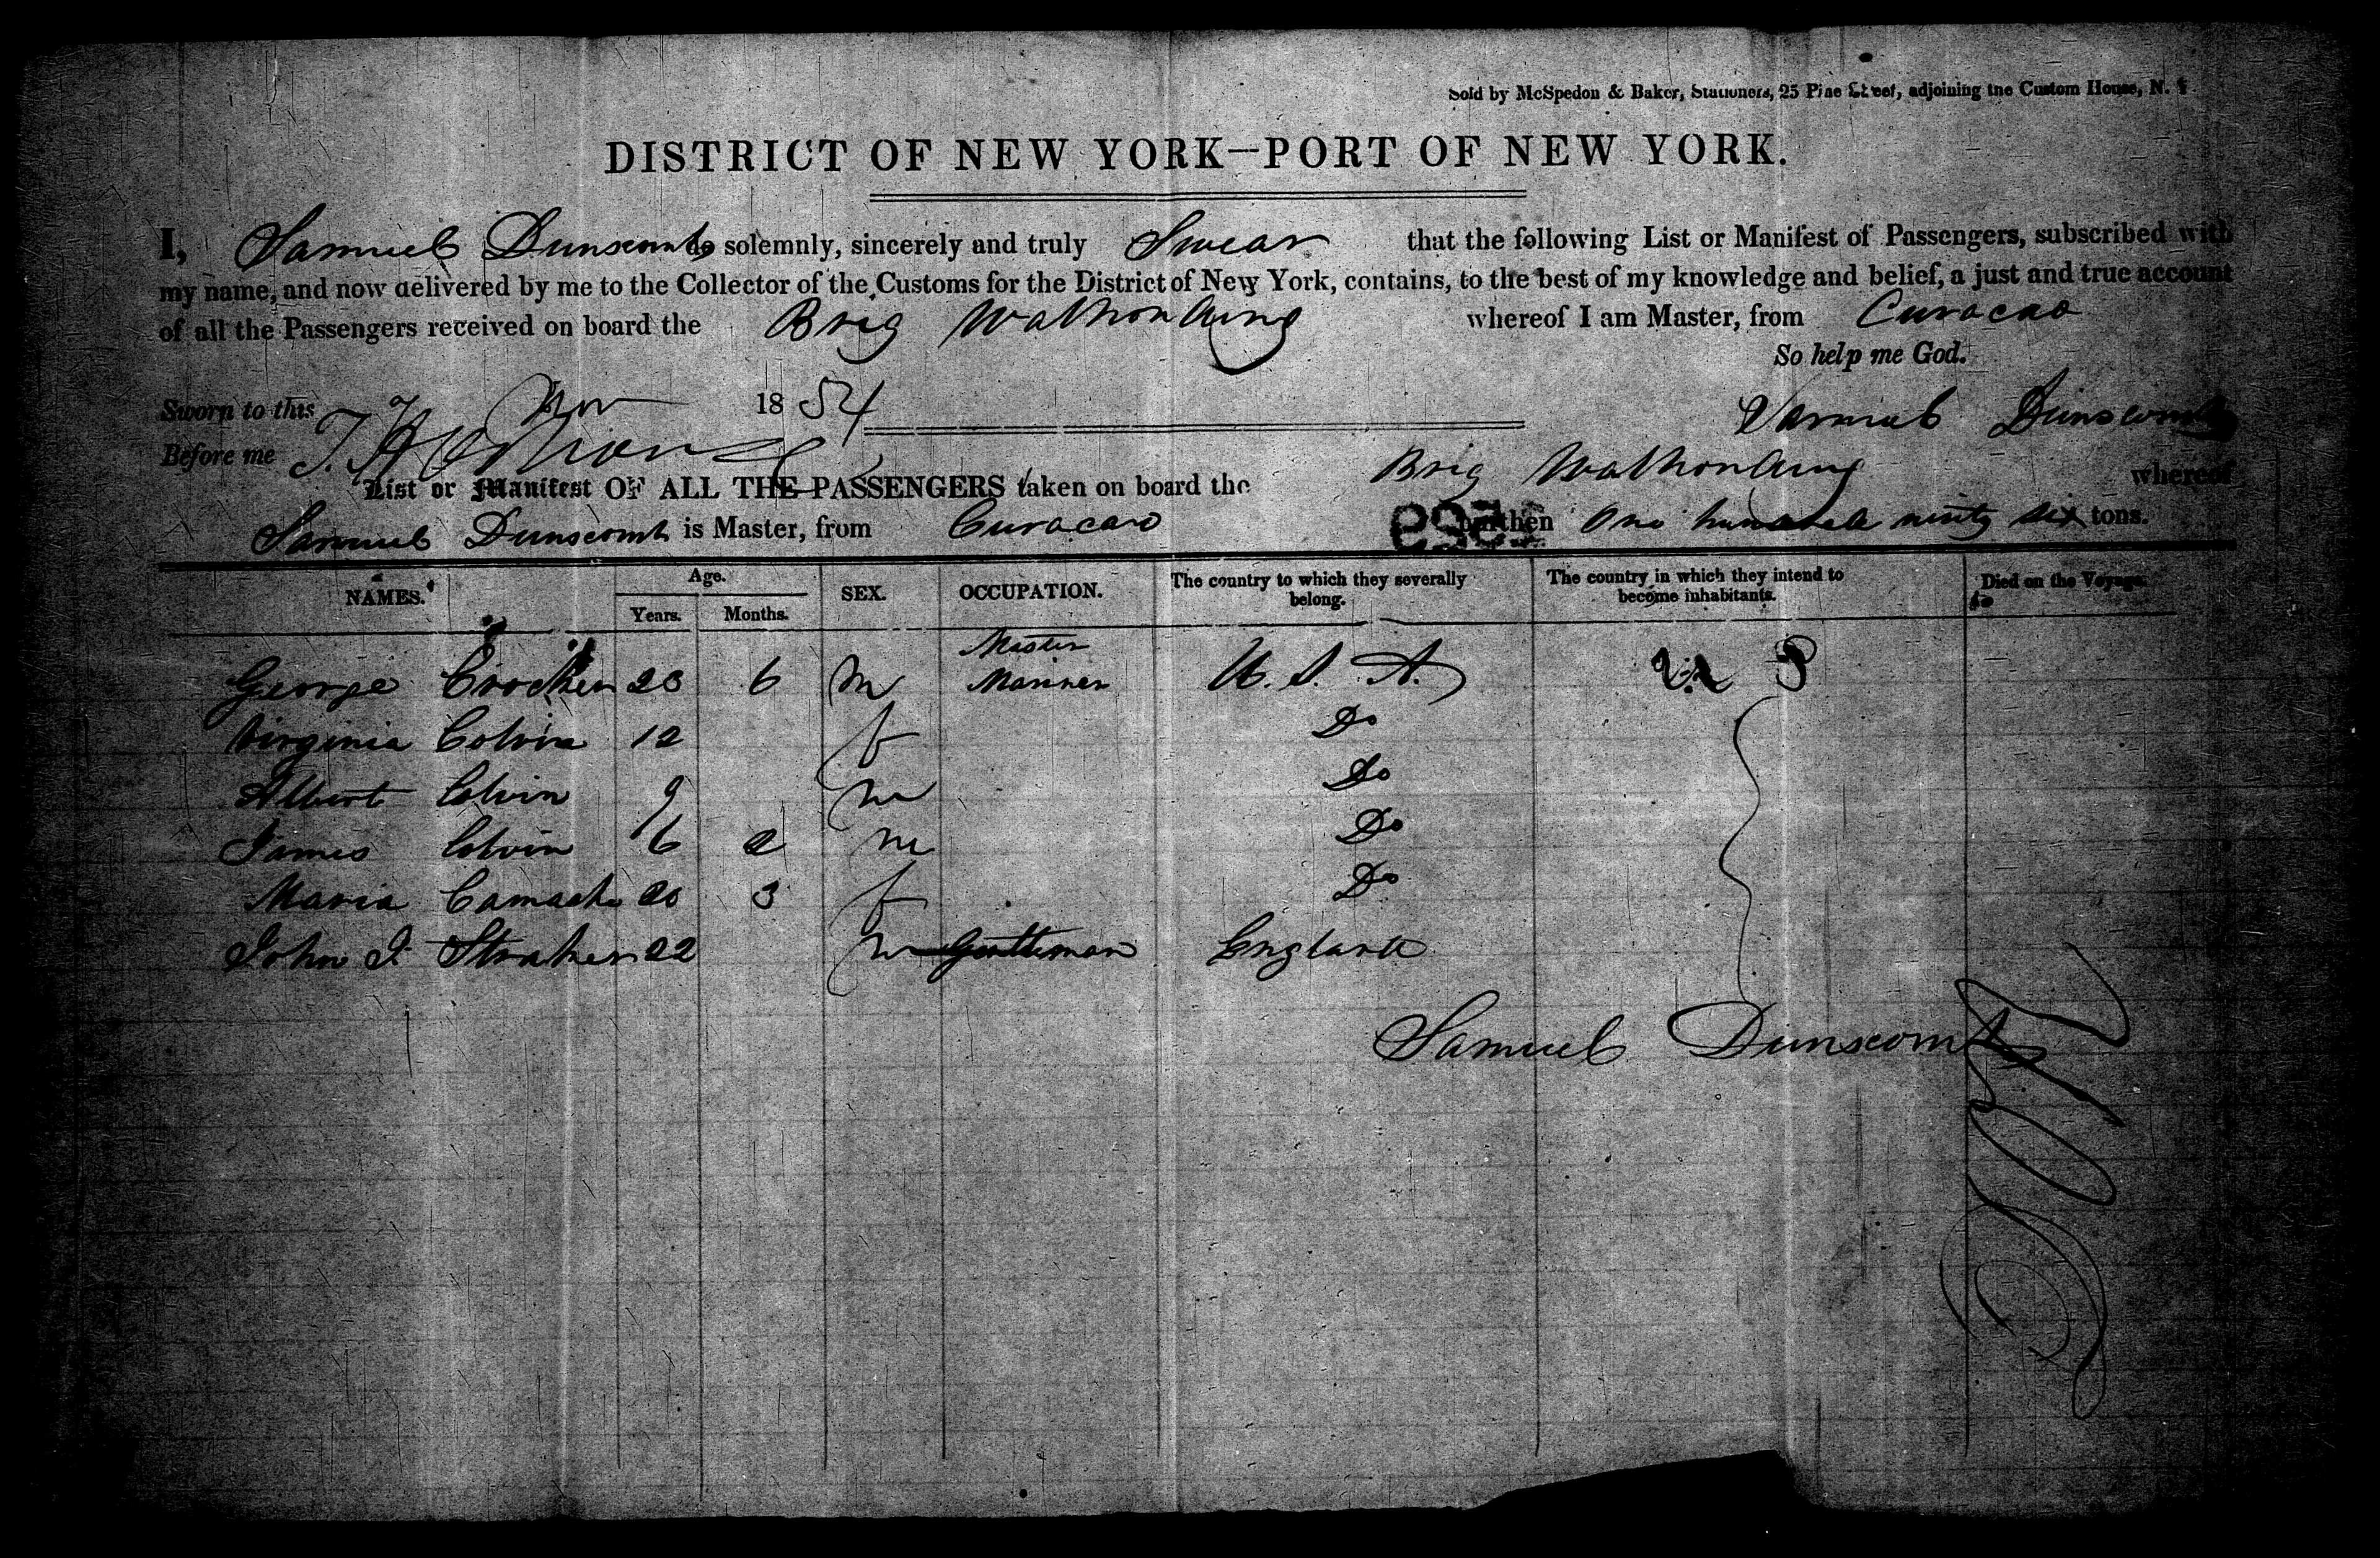 Sold by McSpedon & Baker, Stationers, 25 Pine Street, adjoining the Custom House, N. Y
DISTRICT OF NEW YORK—PORT OF NEW YORK.
I, Samuel Dunscomb do solemnly, sincerely and truly Swear that the following List or Manifest of Passengers, subscribed with
my name, and now delivered by me to the Collector of the Customs for the District of New York, contains, to the best of my knowledge and belief, a just and true account
of all the Passengers received on board the Brig Walhonding whereof I am Master, from Curacao
So help me God.
Sworn to this Nov 1854 Samuel Dunscomb
Before me
List or Manifest OF ALL THE PASSENGERS taken on board the Brig Walhonding whereof
Samuel Dunscomb is Master, from Curacao burthen One hundred ninty six tons.
959
NAMES. Age. Years. Months. SEX. OCCUPATION. The country to which they severally belong. The country in which they intend to become inhabitants. Died on the Voyage.
George Crocker 23 6 m Master Mariner U. S. A. U S
Virginia Colvin 12 f Do
Albert Colvin 9 m Do
James Colvin 6 2 m Do
Maria Camacho 20 3 f Do
John J. Straker 22 m Gentleman England
Samuel Dunscomb